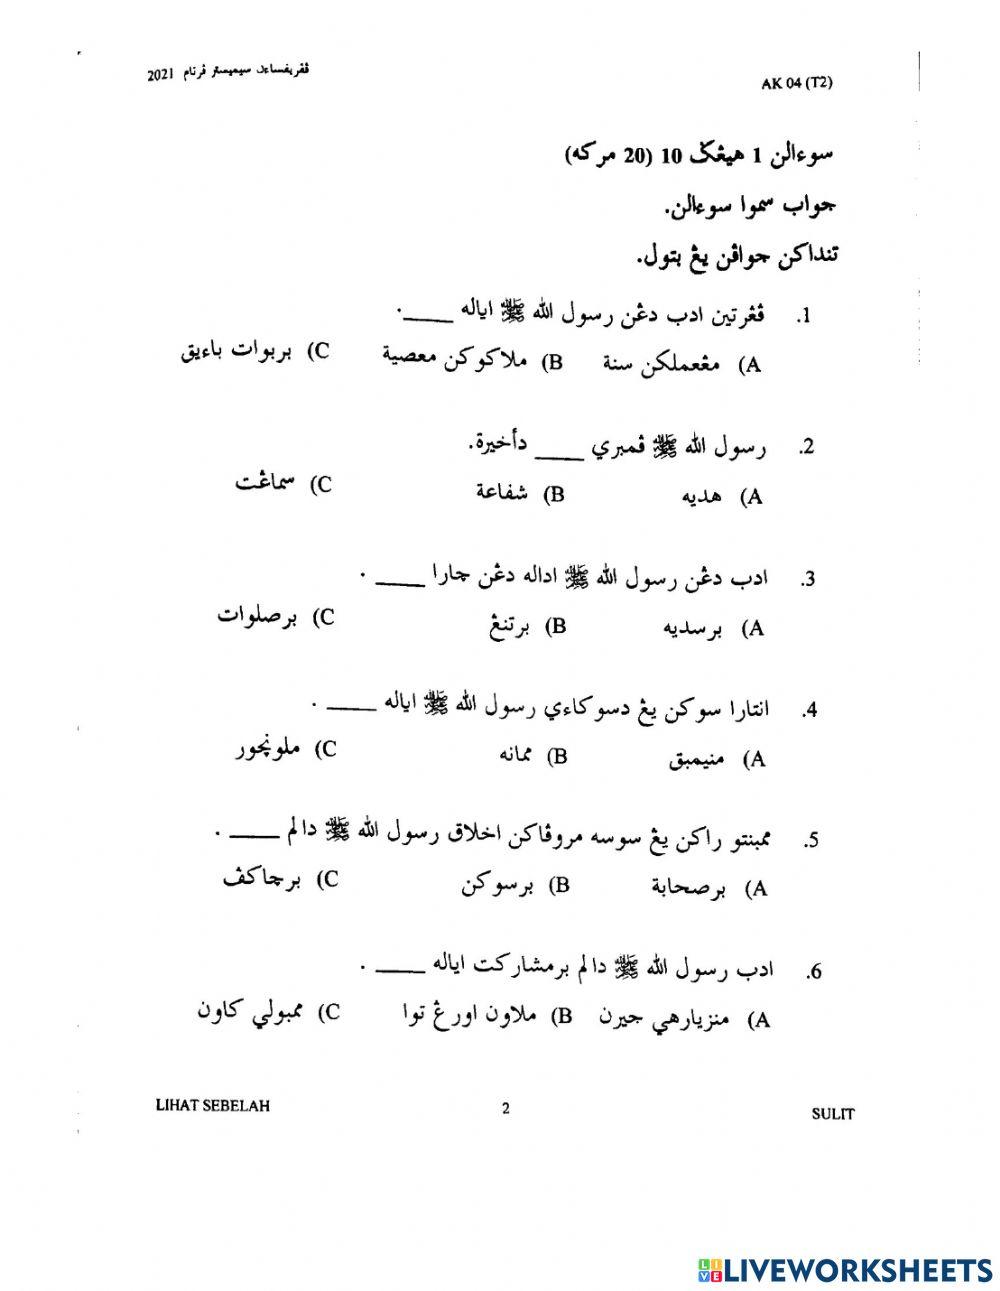 ڤڤريقساءن سيميستر ڤرتام 2021
AK 04 (T2)
سوءالن 1 هيڠݢ 10 (20 مركه)
جواب سموا سوءالن.
تنداكن جواڤن يڠ بتول.
1. ڤڠرتين ادب دڠن رسول الله ﷺ اياله ____.
A) مڠعملكن سنة B) ملاكوكن معصية C) بربوات باءيق
2. رسول الله ﷺ ڤمبري ____ دأخيرة.
A) هديه B) شفاعة C) سماڠت
3. ادب دڠن رسول الله ﷺ اداله دڠن چارا ____ .
A) برسديه B) برتنڠ C) برصلوات
4. انتارا سوكن يڠ دسوكاءي رسول الله ﷺ اياله ____ .
A) منيمبق B) ممانه C) ملونچور
5. ممبنتو راكن يڠ سوسه مروڤاكن اخلاق رسول الله ﷺ دالم ____ .
A) برصحابة B) برسوكن C) برچاكڤ
6. ادب رسول الله ﷺ دالم برمشاركت اياله ____ .
A) منزيارهي جيرن B) ملاون اورڠ توا C) ممبولي كاون
LIHAT SEBELAH
2
SULIT
LIVEWORKSHEETS